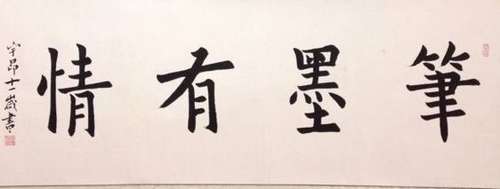 筆墨有情
宇昂十一歲書